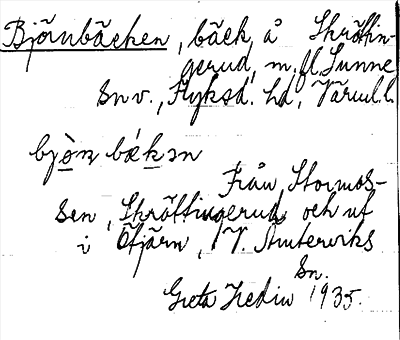 Björnbäcken, bäck, å Skräddin-
gerud, m. fl. Sunne
sn v., Fryksd. hd, Värml.l.
bjò̱n bǽkən
Från Stormos-
sen, Skräddingerud, och uf
i Öjärn, V. Ämterviks
sn.
Greta Hedin 1935.